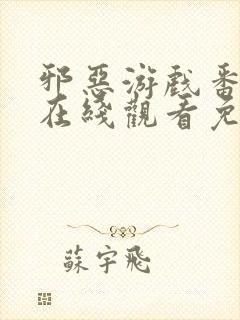 邪惡游戲番
在綫觀看免
蘇宇飛